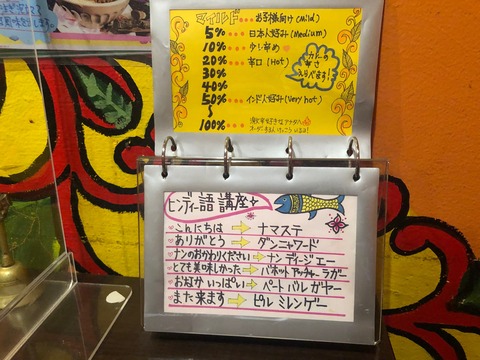 マイルド...お子様向け(Mild)
5%...日本人好み(Medium)
10%...少し辛め
20%...辛口(Hot)
30%
40%
50%...インド人好み(Very hot)
〜
100%...
カレーの辛さえらべます!
ヒンディー語講座
こんにちは → ナマステ
ありがとう → ダンニャワード
ナンのおかわりください → ナンディジエー
とても美味しかった → バホットアッチャーラガー
おなかいっぱい → ペートバルガヤー
また来ます → ピルミレンゲー